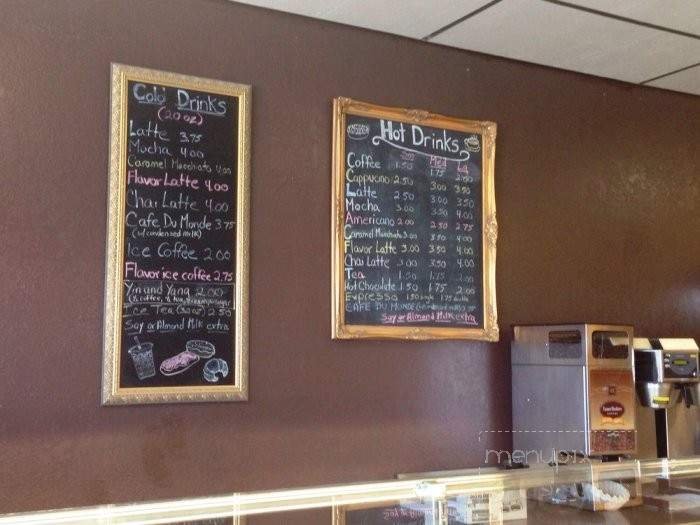 Cold Drinks
(20oz)
Latte 3.75
Mocha 4.00
Caramel Macchiato 4.00
Flavor Latte 4.00
Chai Latte 4.00
Cafe Du Monde 3.75
(w/ condensed milk)
Ice Coffee 2.00
Flavor ice coffee 2.75
Yin and Yang 2.00
Ice Tea 2.50
Soy or Almond Milk extra
Hot Drinks
Med Lg
Coffee 1.50 1.75 2.00
Cappucino 2.50 3.00 3.50
Latte 2.50 3.00 3.50
Mocha 3.00 3.50 4.00
Americano 2.00 2.50 2.75
Caramel Macchiato 3.00 3.50 4.00
Flavor Latte 3.00 3.50 4.00
Chai Latte 3.00 3.50 4.00
Tea 1.50 1.75 2.00
Hot Chocolate 1.50 1.75 2.00
Expresso 1.50 single 1.75 double
CAFE DU MONDE
Soy or Almond Milk extra
menupix